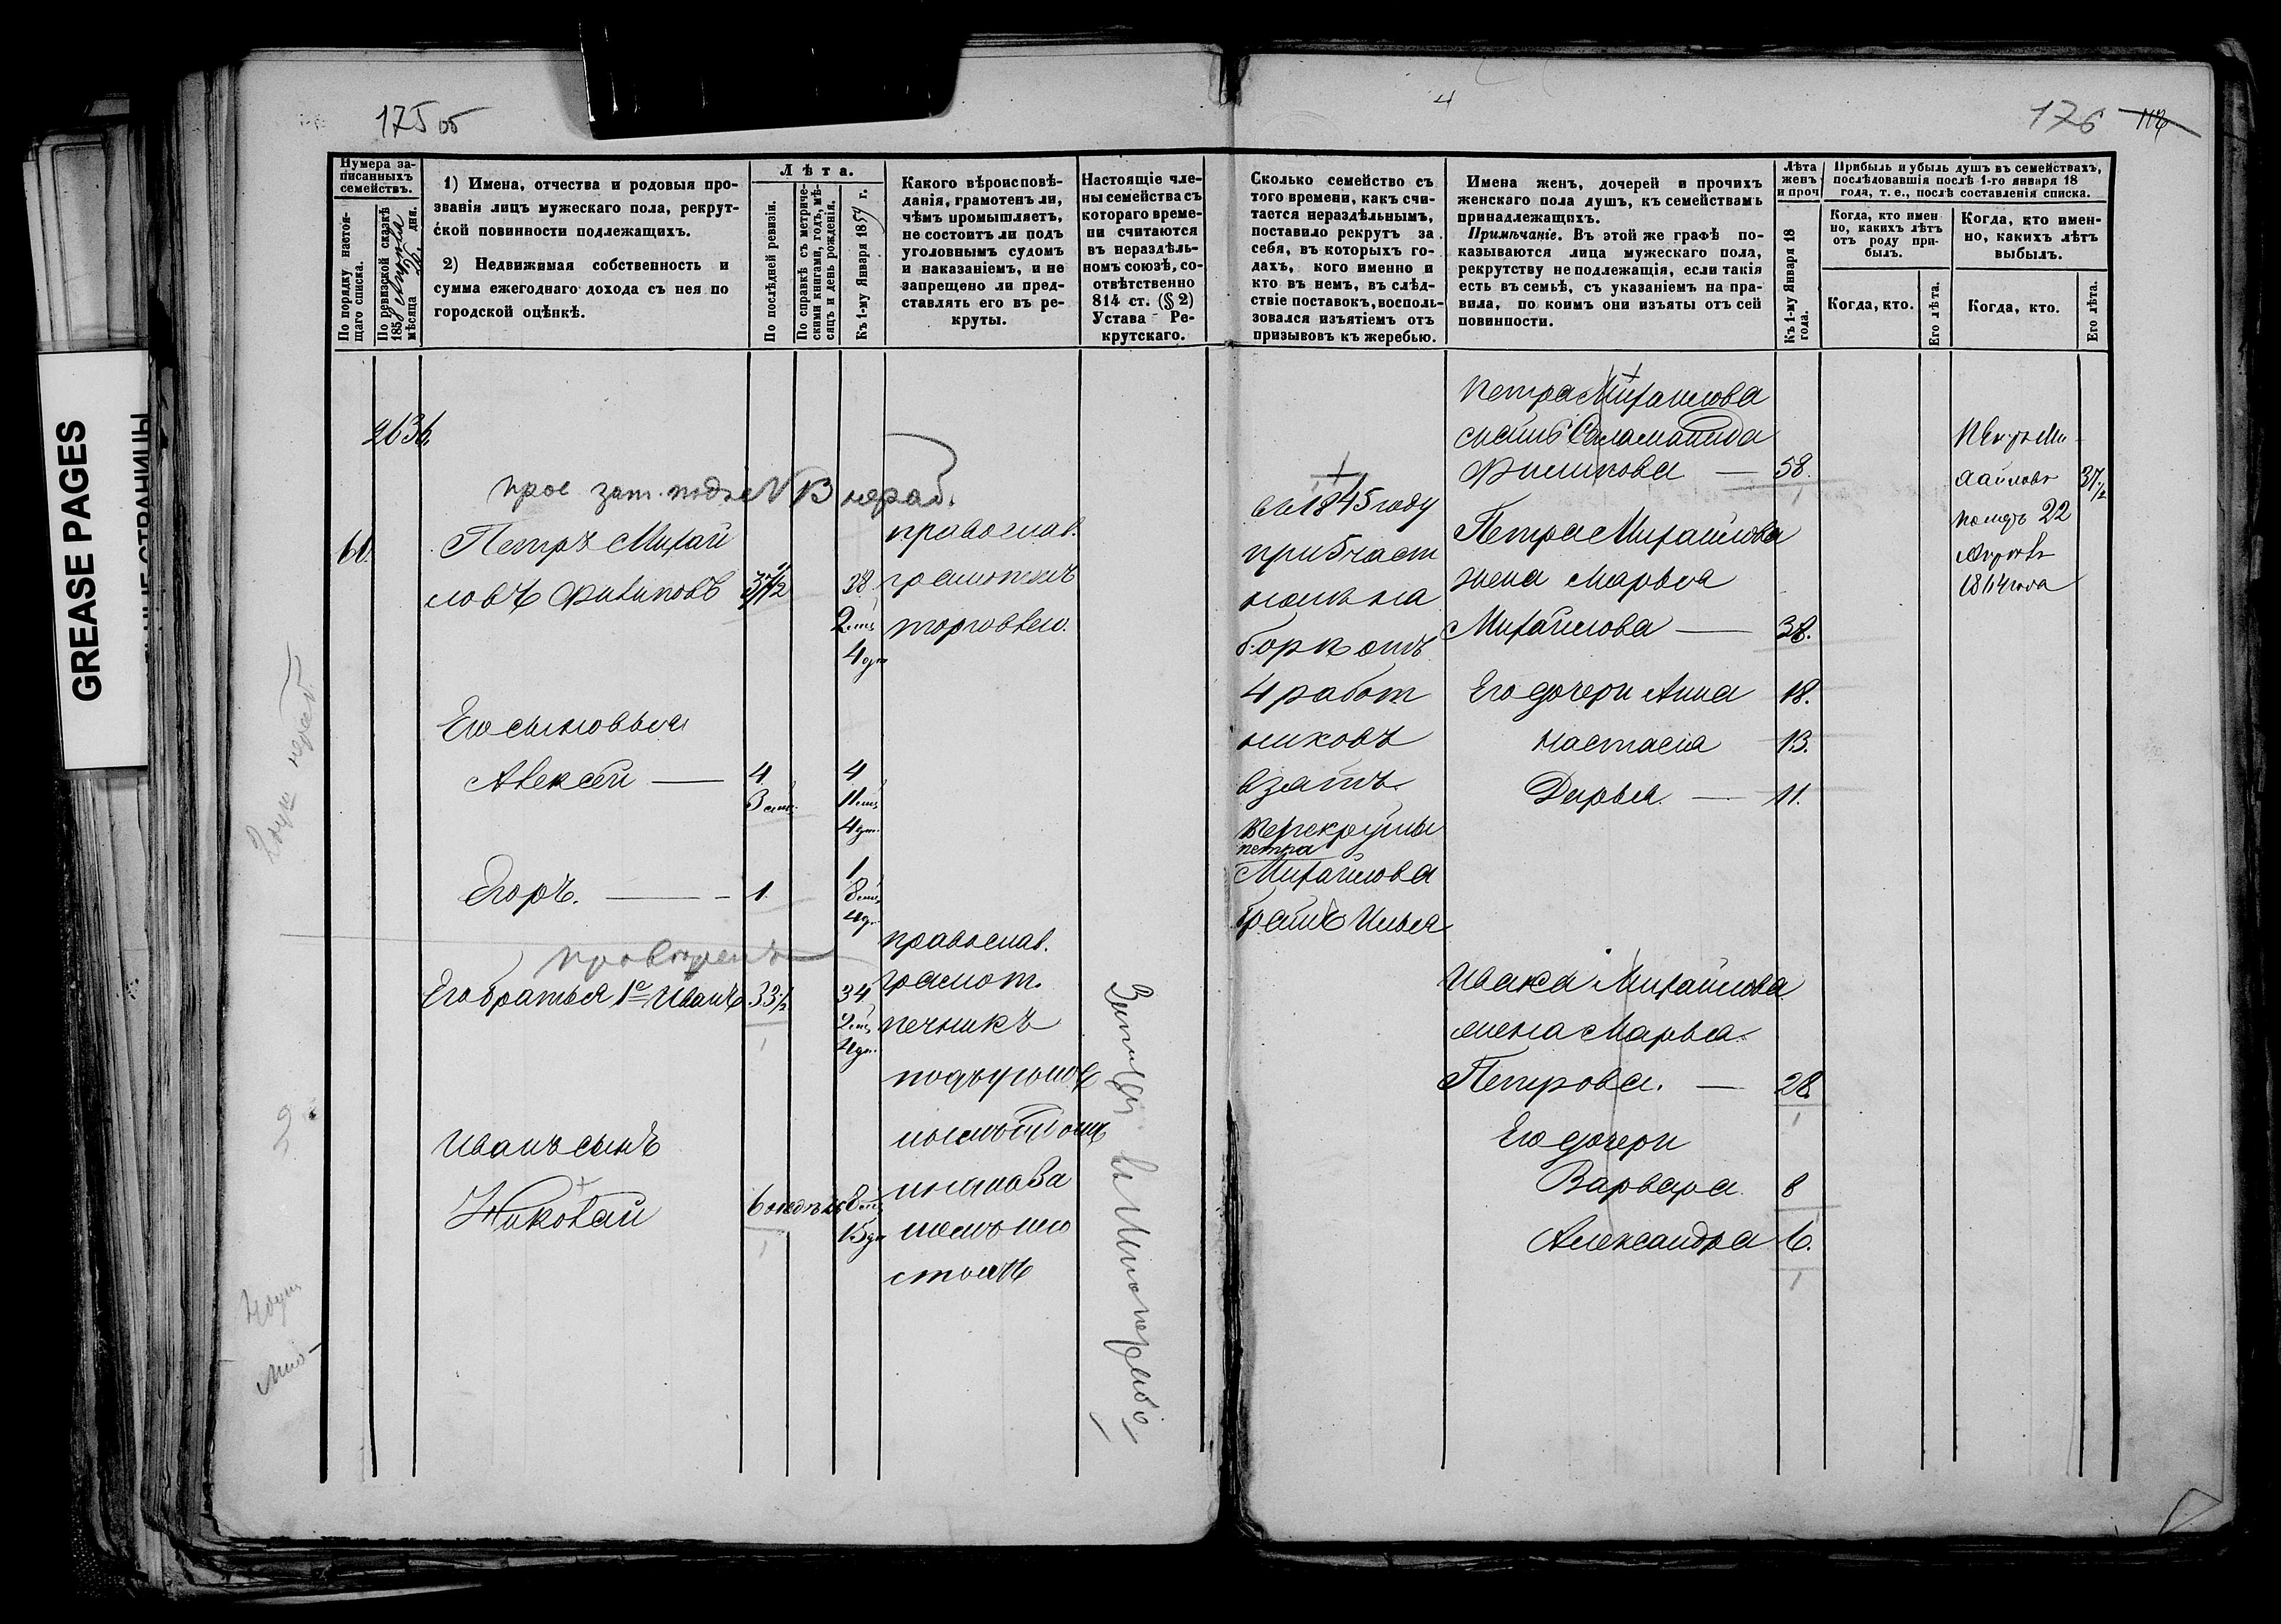 GREASE PAGES
175 об
Нумера за-
писанныхъ
семействъ.
По порядку настоя-
щаго списка.
По ревизской сказкѣ
185 мѣсяца дня.
1) Имена, отчества и родовыя про-
званія лицъ мужескаго пола, рекрут-
ской повинности подлежащихъ.
2) Недвижимая собственность и
сумма ежегоднаго дохода съ нея по
городской оцѣнкѣ.
Лѣта.
По послѣдней ревизіи.
По справкѣ съ метриче-
скими книгами, годъ, мѣ-
сяцъ и день рожденія.
Къ 1-му Января 185 г.
Какого вѣроисповѣ-
данія, грамотенъ ли,
чѣмъ промышляетъ,
не состоитъ ли подъ
уголовнымъ судомъ
и наказаніемъ, и не
запрещено ли пред-
ставлять его въ ре-
круты.
Настоящіе чле-
ны семейства съ
котораго време-
ни считаются
въ нераздѣль-
номъ союзѣ, со-
отвѣтственно
814 ст. (§ 2)
Устава Ре-
крутскаго.
2636
60.
Петръ Михай
ловъ Филиповъ 37½ 38
2 мц
4 дн
православ.
грамотенъ
торговлею.
Его сыновья
Алексей — 4 4
11 мц
4 дн.
Егоръ. — 1. 1
8 мц
4 дн
Его братья 1е Иванъ 33½ 34
2 мц
4 дн.
православ.
грамот.
печникъ
Иванъ сынъ
Николай 6 недѣль 8 мц
15 дн
4
176
Сколько семейство съ
того времени, какъ счи-
тается нераздѣльнымъ,
поставило рекрутъ за
себя, въ которыхъ го-
дахъ, кого именно и
кто въ немъ, въ слѣд-
ствіе поставокъ, восполь-
зовался изъятіемъ отъ
призывовъ къ жеребью.
Имена женъ, дочерей и прочихъ
женскаго пола душъ, къ семействамъ
принадлежащихъ.
Примѣчаніе. Въ этой же графѣ по-
казываются лица мужескаго пола,
рекрутству не подлежащія, если такія
есть въ семьѣ, съ указаніемъ на пра-
вила, по коимъ они изъяты отъ сей
повинности.
Лѣта
женъ
и проч
Къ 1-му Января 18
года.
Прибыль и убыль душъ въ семействахъ,
послѣдовавшія послѣ 1-го января 18
года, т. е., послѣ составленія списка.
Когда, кто имен
но, какихъ лѣтъ
отъ роду при-
былъ.
Когда, кто имен-
но, какихъ лѣтъ
выбылъ.
Когда, кто.
Его лѣта.
Когда, кто.
Его лѣта.
въ 1845 году
при 5 част
номъ на
борѣ отъ
4 работ
никовъ
взятъ
в рекруты
петра
Михайлова
братъ Илья
Петра Михайлова
мать Саламанида
Филипова — 58.
Петра Михайлова
жена Марья
Михайлова — 38.
Его дочери Анна 18.
Настасія 13.
Дарья. — 11.
Ивана Михайлова
жена Марья
Петрова. — 28.
Его дочери
Варвара 8
Александра 6.
Петръ Ми
хайловъ 37½
померъ 22
1864 года